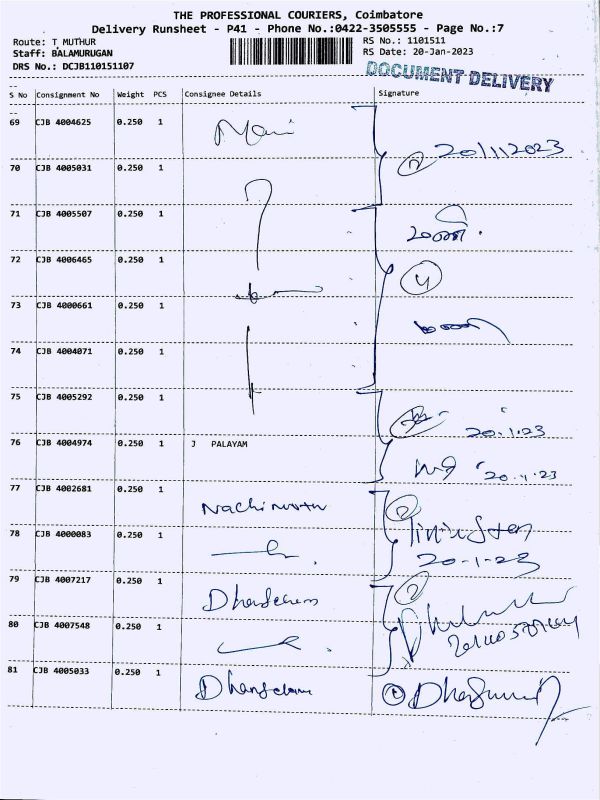 THE PROFESSIONAL COURIERS, Coimbatore
Delivery Runsheet - P41 - Phone No.:0422-3505555 - Page No.:7
Route: T_MUTHUR
RS No.: 1101511
Staff: BALAMURUGAN
RS Date: 20-Jan-2023
DRS No.: DCJB110151107
DOCUMENT DELIVERY
S No Consignment No Weight PCS Consignee Details Signature
69 CJB 4004625 0.250 1 Mani
20/1/2023
70 CJB 4005031 0.250 1
71 CJB 4005507 0.250 1
72 CJB 4006465 0.250 1
73 CJB 4000661 0.250 1
74 CJB 4004071 0.250 1
75 CJB 4005292 0.250 1
20.1.23
76 CJB 4004974 0.250 1 J PALAYAM
20.1.23
77 CJB 4002681 0.250 1
78 CJB 4000083 0.250 1
20-1-23
79 CJB 4007217 0.250 1
80 CJB 4007548 0.250 1
81 CJB 4005033 0.250 1